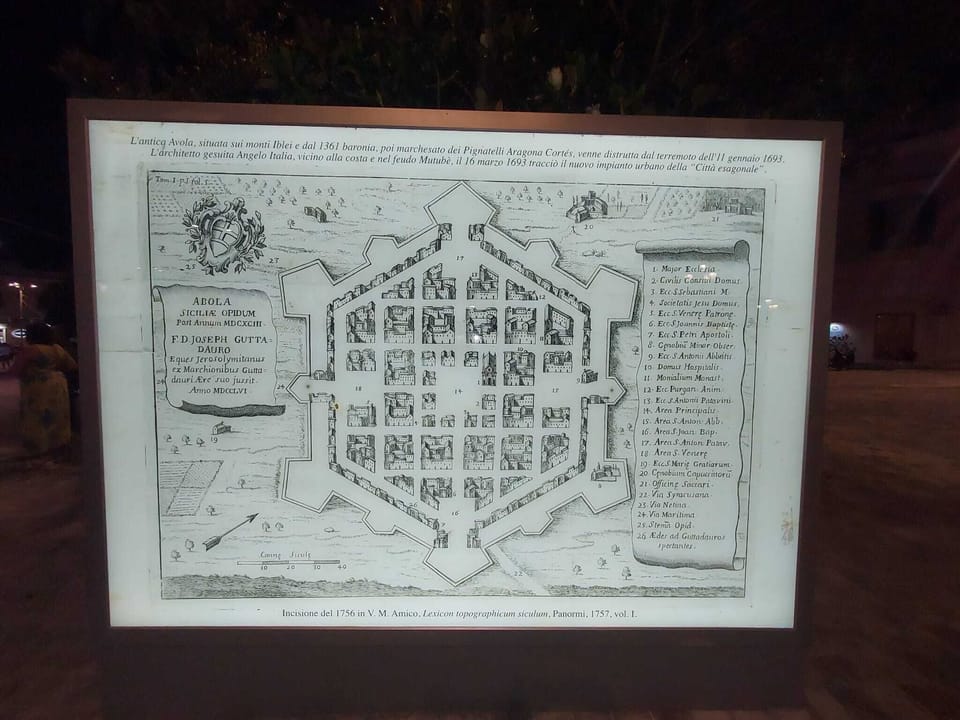 L'antica Avola, situata sui monti Iblei e dal 1361 baronia, poi marchesato dei Pignatelli Aragona Cortés, venne distrutta dal terremoto dell'11 gennaio 1693.
L'architetto gesuita Angelo Italia, vicino alla costa e nel feudo Mutubè, il 16 marzo 1693 tracciò il nuovo impianto urbano della "Città esagonale".
Tom. I. p.I. fol. I.
ABOLA
SICILIÆ OPIDUM
Post Annum MDCXCIII
F. D. JOSEPH GUTTA-
DAURO
Eques Jerosolymitanus
ex Marchionibus Gutta-
dauri Ære suo jussit.
Anno MDCCLVI
1. Major Ecclesia
2. Civilis Domus
3. Ecc. S. Sebastiani M.
4. Societatis Jesu Domus
5. Ecc. S. Venerę Patronę
6. Ecc. S. Joannis Baptistę
7. Ecc. S. Petri Apostoli
8. Cęnobiũ Minor. Obser.
9. Ecc. S. Antonii Abbatis
10. Domus Hospitalis
11. Monialium Monast.
12. Ecc. Purgan. Anim.
13. Ecc. S. Antonii Patavini
14. Area Principalis
15. Area S. Anton. Abb.
16. Area S. Joan. Bap.
17. Area S. Anton. Patav.
18. Area S. Venerę
19. Ecc. S. Marię Gratiarum
20. Cęnobium Capuccinorũ
21. Officinę Saccari
22. Via Syracusana
23. Via Netina
24. Via Maritima
25. Stem̃a Opid.
26. Ædes ad Guttadauros
spectantes.
Canne Siculę
10 20 30 40
Incisione del 1756 in V. M. Amico, Lexicon topographicum siculum, Panormi, 1757, vol. I.